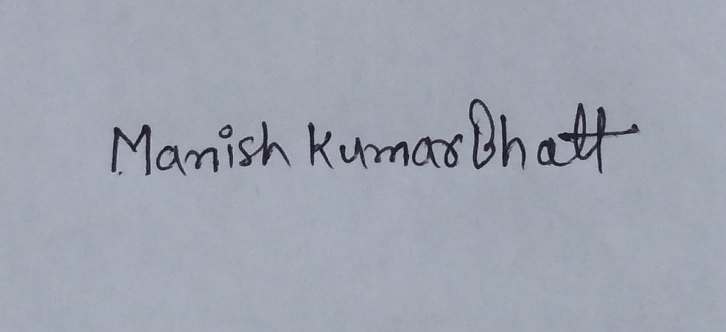 Manish Kumar Bhatt